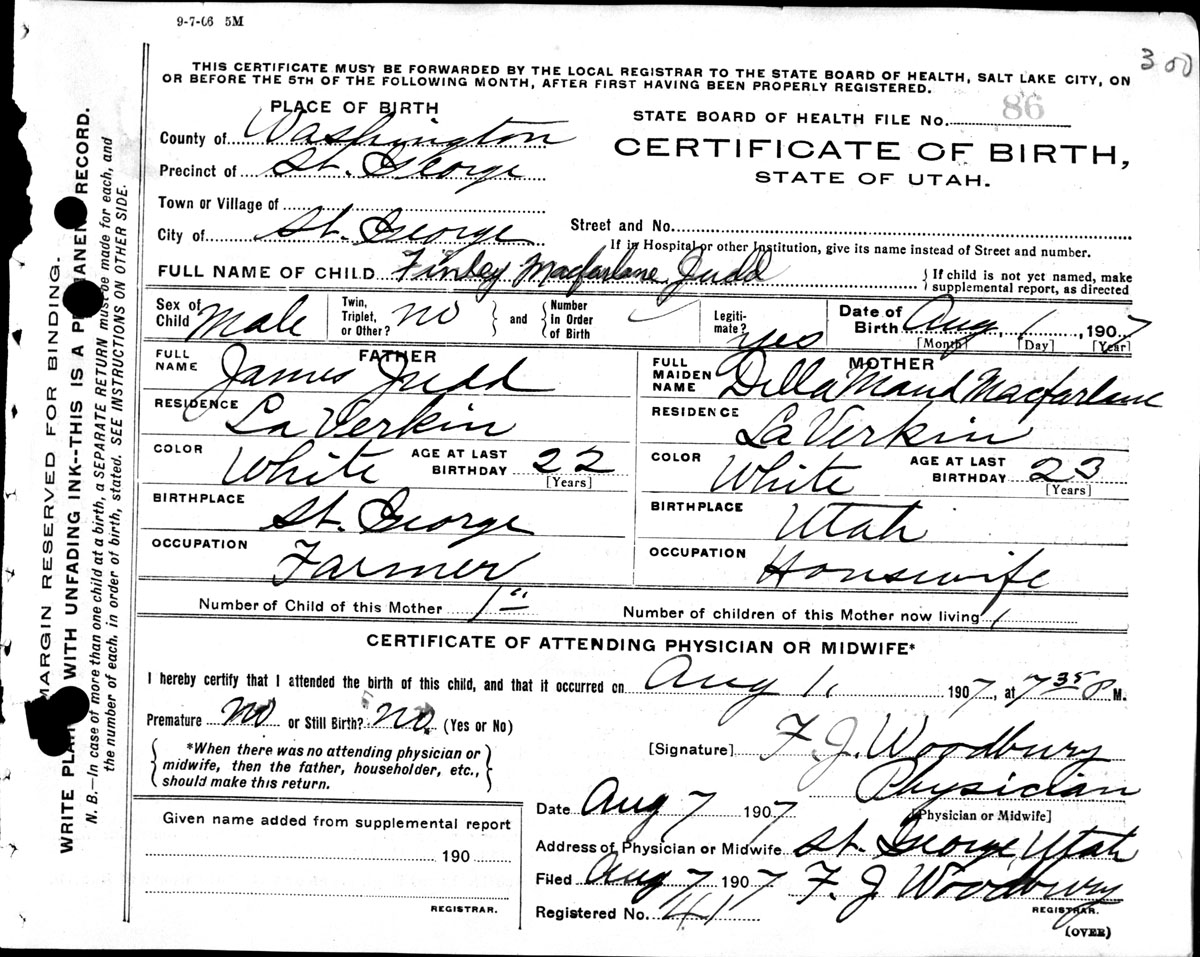 9-7-06 5M
300
THIS CERTIFICATE MUST BE FORWARDED BY THE LOCAL REGISTRAR TO THE STATE BOARD OF HEALTH, SALT LAKE CITY, ON
OR BEFORE THE 5TH OF THE FOLLOWING MONTH, AFTER FIRST HAVING BEEN PROPERLY REGISTERED.
PLACE OF BIRTH
County of Washington
Precinct of St. George
Town or Village of
City of St. George
STATE BOARD OF HEALTH FILE No. 86
CERTIFICATE OF BIRTH,
STATE OF UTAH.
Street and No.
If in Hospital or other Institution, give its name instead of Street and number.
FULL NAME OF CHILD Finley Macfarlane Judd
If child is not yet named, make
supplemental report, as directed
Sex of Child Male
Twin, Triplet, or Other? no
and Number in Order of Birth
Legiti-mate? yes
Date of Birth Aug 1, 1907
[Month] [Day] [Year]
FATHER
FULL NAME James Judd
RESIDENCE La Verkin
COLOR White AGE AT LAST BIRTHDAY 22
[Years]
BIRTHPLACE St. George
OCCUPATION Farmer
MOTHER
FULL MAIDEN NAME Della Maud Macfarlane
RESIDENCE La Verkin
COLOR White AGE AT LAST BIRTHDAY 23
[Years]
BIRTHPLACE Utah
OCCUPATION Housewife
Number of Child of this Mother 1st
Number of children of this Mother now living 1
CERTIFICATE OF ATTENDING PHYSICIAN OR MIDWIFE*
I hereby certify that I attended the birth of this child, and that it occurred on Aug 1, 1907, at 7 35 P M.
Premature no or Still Birth? no. (Yes or No)
*When there was no attending physician or
midwife, then the father, householder, etc.,
should make this return.
[Signature] F. J. Woodbury
Physician
[Physician or Midwife]
Given name added from supplemental report
190
REGISTRAR.
Date Aug 7 1907
Address of Physician or Midwife St. George, Utah
Filed Aug 7 1907 F. J. Woodbury
REGISTRAR.
Registered No. 41
(OVER)
MARGIN RESERVED FOR BINDING.
WRITE WITH UNFADING INK--THIS IS A RECORD.
N. B.—In case of more than one child at a birth, a SEPARATE RETURN must be made for each, and
the number of each, in order of birth, stated. SEE INSTRUCTIONS ON OTHER SIDE.